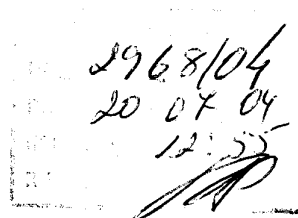 2968/04
20 04 04
12:55